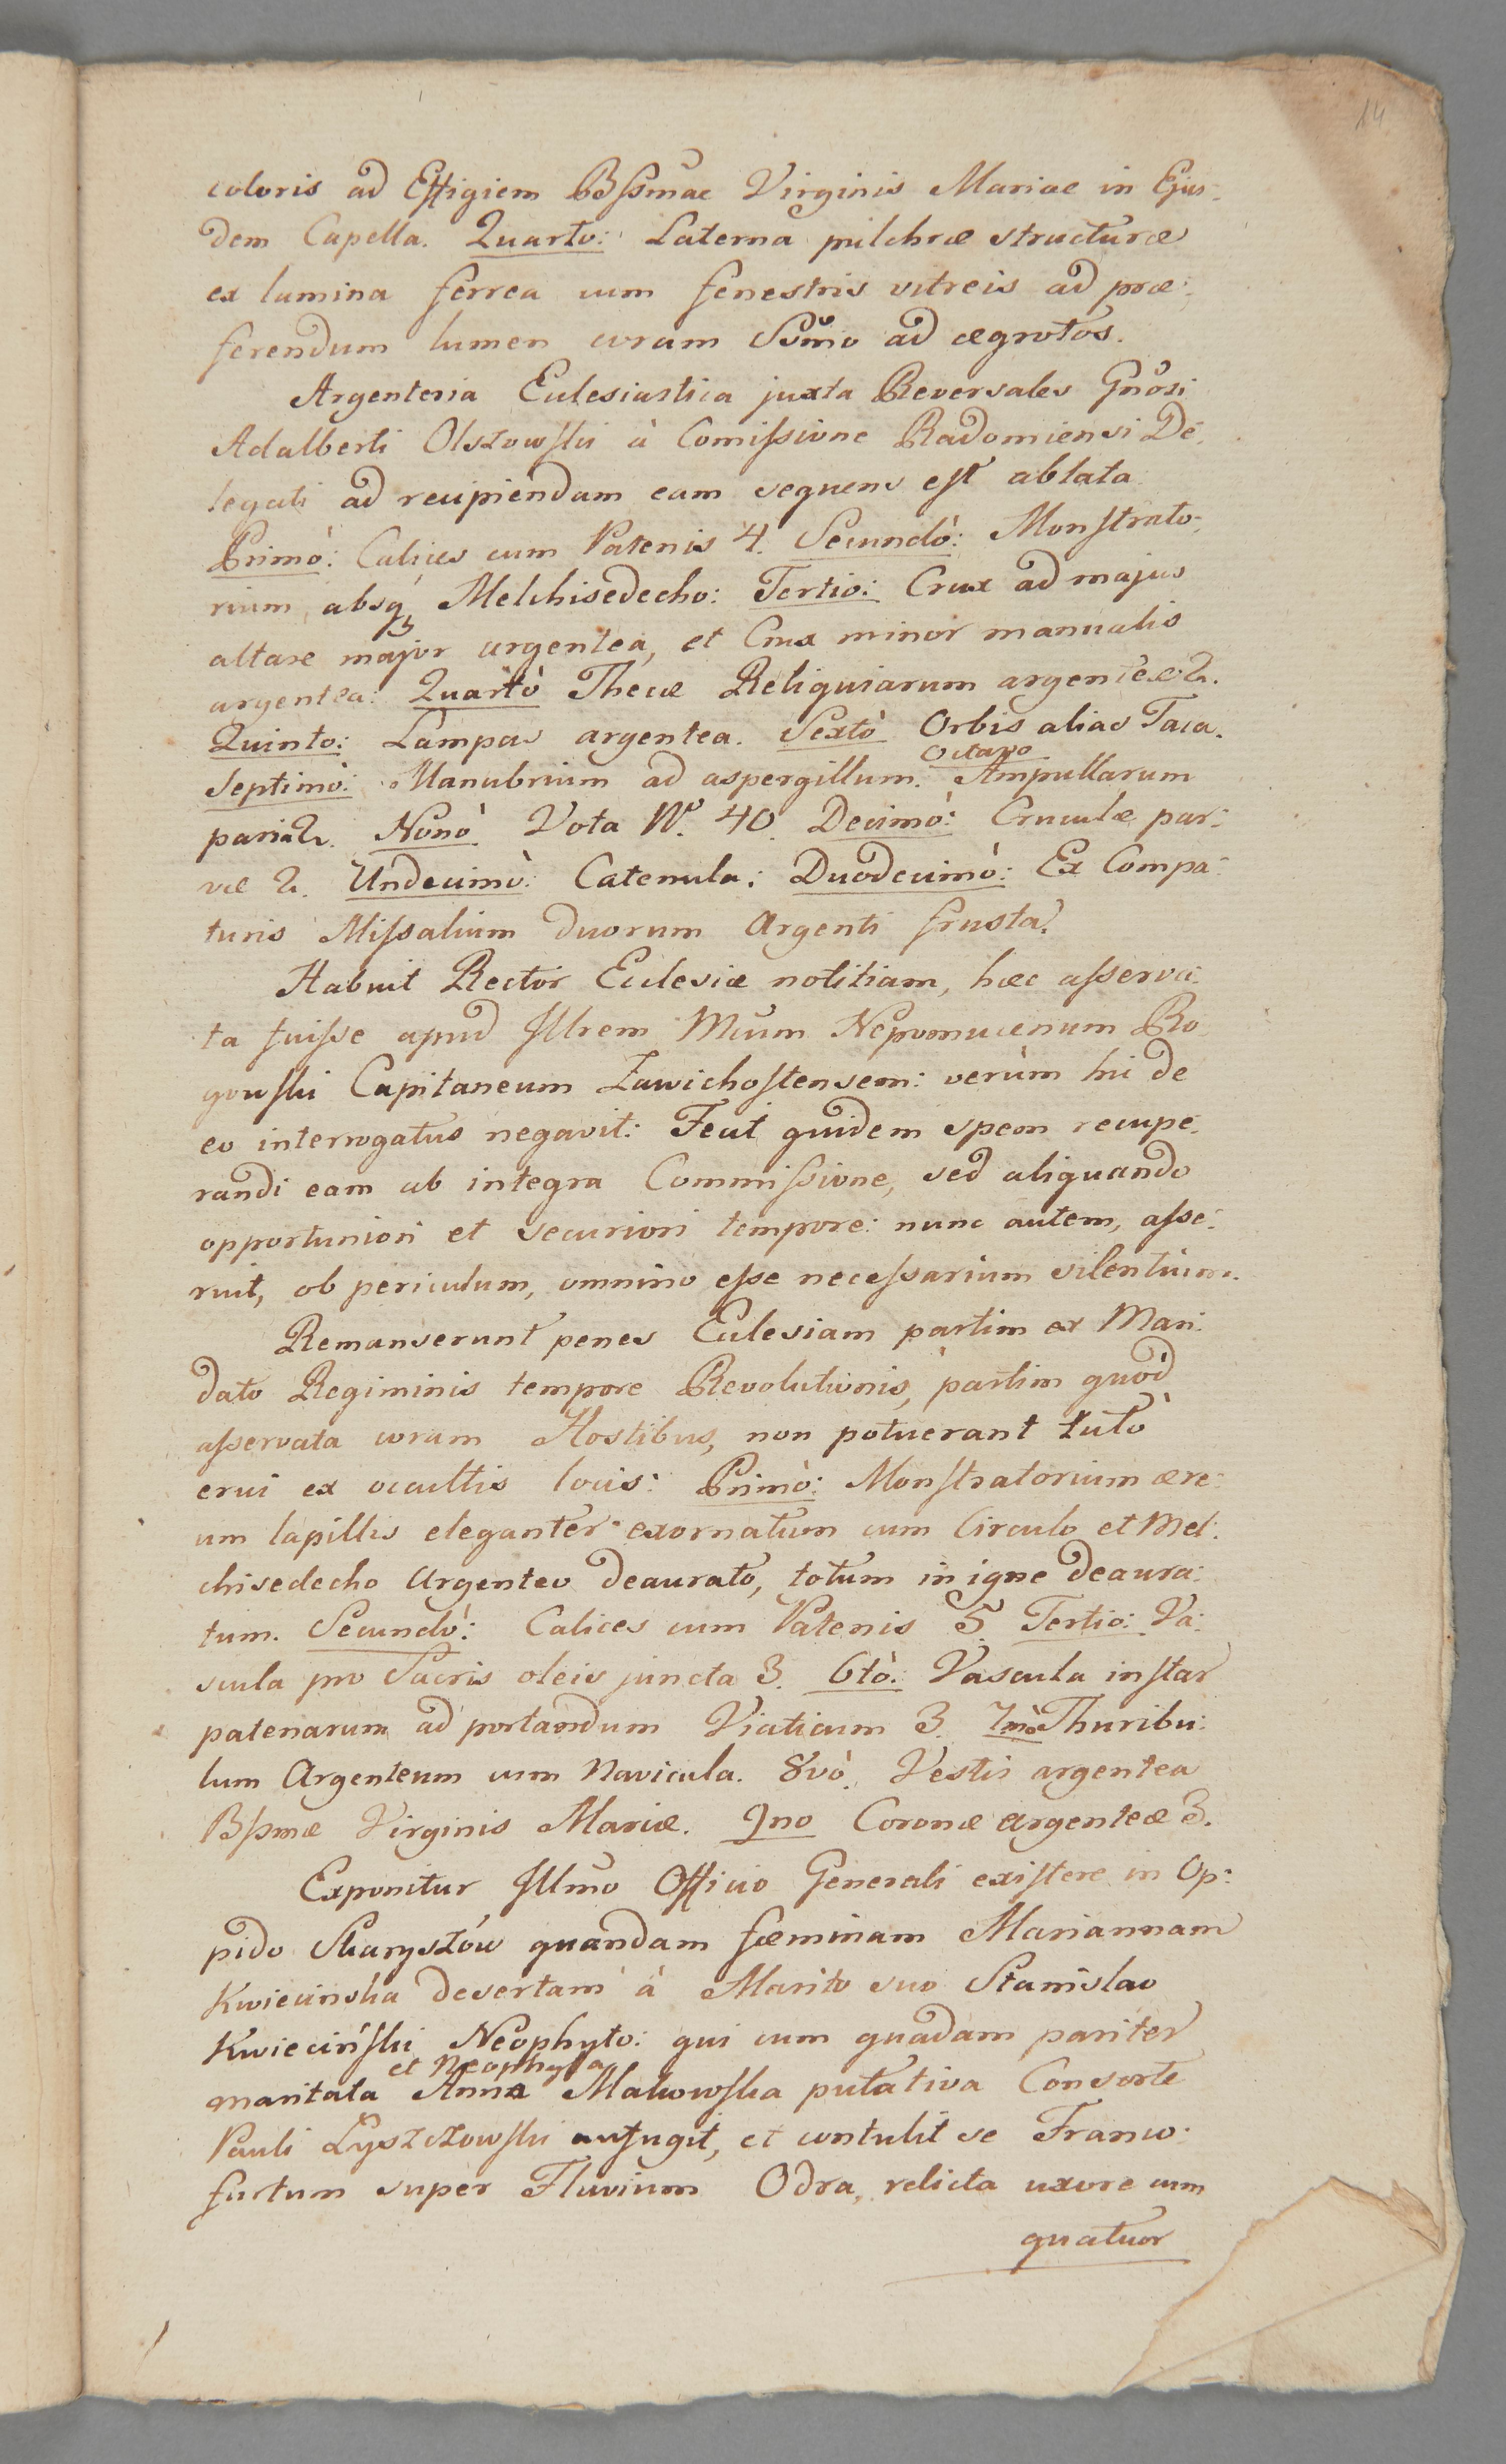 14
coloris ad Effigiem Bſsmae Virginis Mariae in Ejus-
dem Capella. Quarto: Laterna pulchræ structuræ
ex lamina ferrea cum fenestris vitreis ad præ-
ferendum lumen coram Ssmo ad ægrotos.
Argenteria Ecclesiastica juxta Reversales Gnosi
Adalberti Olszowſki à Comiſsione Radomiensi De-
legati ad recipiendam eam sequens eſt ablata
Primò: Calices cum Patenis 4. Secundò: Monſtrato-
rium absq Melchisedecho: Tertio: Crux ad majus
altare major argentea, et Crux minor manualis
argentea: Quartò Thecæ Reliquiarum argenteæ 2.
Quinto: Lampas argentea. Sextò Orbis alias Taca.
Septimò: Manubrium ad aspergillum. Octavo Ampullarum
paria 2. Nonò Vota No. 40. Decimò: Cruculæ par-
væ 2. Undecimò: Catenula: Duodecimò: Ex Compa-
turis Miſsalium duorum Argenti frusta.
Habuit Rector Ecclesiæ notitiam, hæc aſserva-
ta fuiſse apud Illrem Mcum Nepomucenum Ro-
gowſki Capitaneum Zawichoſtensem: verùm hic de
eo interrogatus negavit: Fecit quidem spem recupe-
randi eam ab integra Commiſsione, sed aliquando
opportuniori et securiori tempore: nunc autem, aſse-
ruit, ob periculum, omnino eſse neceſsarium silentium.
Remanserunt penes Ecclesiam partim ex Man-
dato Regiminis tempore Revolutionis, partim quòd
aſservata coram Hostibus, non potuerant tutò
erui ex occultis locis: Primò: Monſtratorium ære-
um lapillis eleganter exornatum cum Circulo et Mel-
chisedecho Argenteo deaurato, totum in igne deaura-
tum. Secundò: Calices cum Patenis 5. Tertio: Va-
scula pro Sacris oleis juncta 3. 6tò: Vascula inſtar
patenarum ad portandum Viaticum 3. 7mò Thuribu-
lum Argenteum cum Navicula. 8vò. Vestis argentea
Bſsmæ Virginis Mariæ. 9no Coronæ argenteæ 3.
Exponitur Illmo Officio Generali exiſtere in Op-
pido Skaryszów quandam fæminam Mariannam
Kwiecinska desertam à Marito suo Stanislao
Kwiecińſki Neophyto: qui cum quadam pariter
maritata et Neophyta Anna Makowſka putativa Consorte
Pauli Łyszczowſki aufugit, et contulit se Franco-
furtum super Fluvium Odra, relicta uxore cum
quatuor